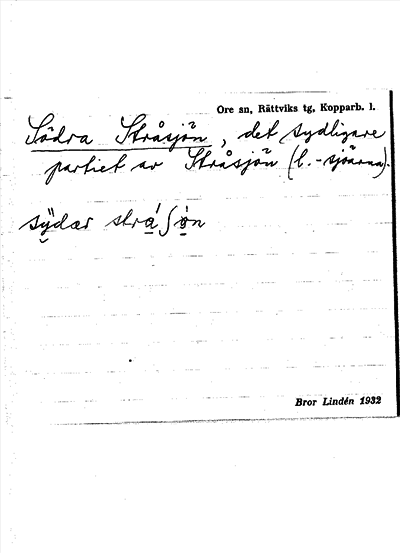 Ore sn, Rättviks tg, Kopparb. l.
Södra Stråsjön, det sydligare
partiet av Stråsjön (l. -sjöarna).
sÿ̮dær strá̲ʃó̲n
Bror Lindén 1932